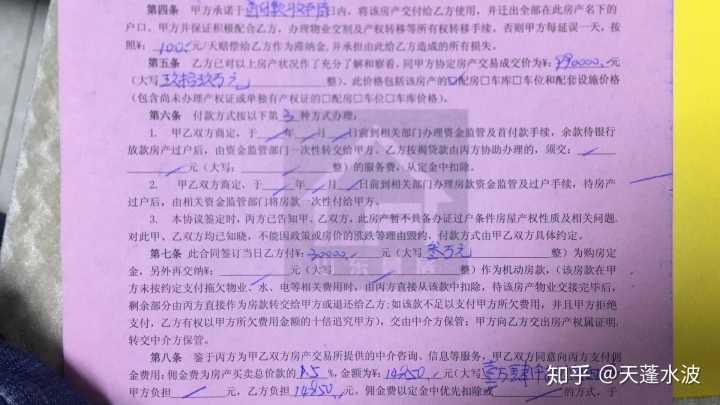 第四条 甲方承诺于首付款已收齐后日内，将该房产交付给乙方使用，并迁出全部在此房产名下的
户口。甲方并保证积极配合乙方，办理物业交割及产权转移等所有权转移手续。否则甲方每延误一天，按
照¥：100元/天赔偿给乙方作为滞纳金,并承担由此给乙方造成的所有损失。
第五条 乙方已对以上房产状况作了充分了解和察看，同甲方协定房产交易成交价为¥：990000元
（大写 玖拾玖万元 整）。此价格包括该房产的☑配房□车库□车位和配套设施价格
（包含尚未办理产权证或单独有产权证的□配房□车位□车库价格）。
第六条 付款方式按以下第 3 种方式办理：
1. 甲乙双方商定，于 年 月 日前到相关部门办理资金监管及首付款手续，余款待银行
放款房产过户后，由资金监管部门一次性转交给甲方。乙方按揭贷款由丙方协助办理的，须交：
元（大写： 整）的服务费，从定金中扣除。
2. 甲乙双方商定，于 年 月 日前到相关部门办理房款资金监管及过户手续，待房产
过户后，由相关资金监管部门将房款一次性付给甲方。
3. 本协议签定时，丙方已告知甲、乙双方，此房产暂不具备办证过户条件房屋产权性质及相关问题.
对此甲、乙双方均已知晓，不能因政策或房价的涨跌等理由毁约，付款方式由甲乙双方具体约定。
第七条 此合同签订当日乙方付¥：30000 元（大写 叁万元 整）为购房定
金，另外再交纳¥： 元（大写 整）作为机动房款，（该房款在甲
方未按约定支付拖欠物业、水、电等相关费用时，由丙方直接从该款中扣除，待该房产物业交接完毕后，
剩余部分由丙方直接作为房款转交给甲方或退还给乙方;如该款不足以支付甲方所欠费用，并且甲方拒绝
支付，乙方有权以甲方所欠费用金额的十倍追究甲方），交由中介方保管；甲方向乙方交出房产权属证明.
转交中介方保管。
第八条 鉴于丙方为甲乙双方房产交易所提供的中介咨询、信息等服务，甲乙双方同意向丙方支付佣
金费用；佣金费为房产买卖总价款的 1.5 %，金额为¥：14850 元（大写 壹万肆仟
甲方负担 元，乙方负担 14850 元，佣金费以定金中优先扣除或 的方式，于
知乎 @天蓬水波